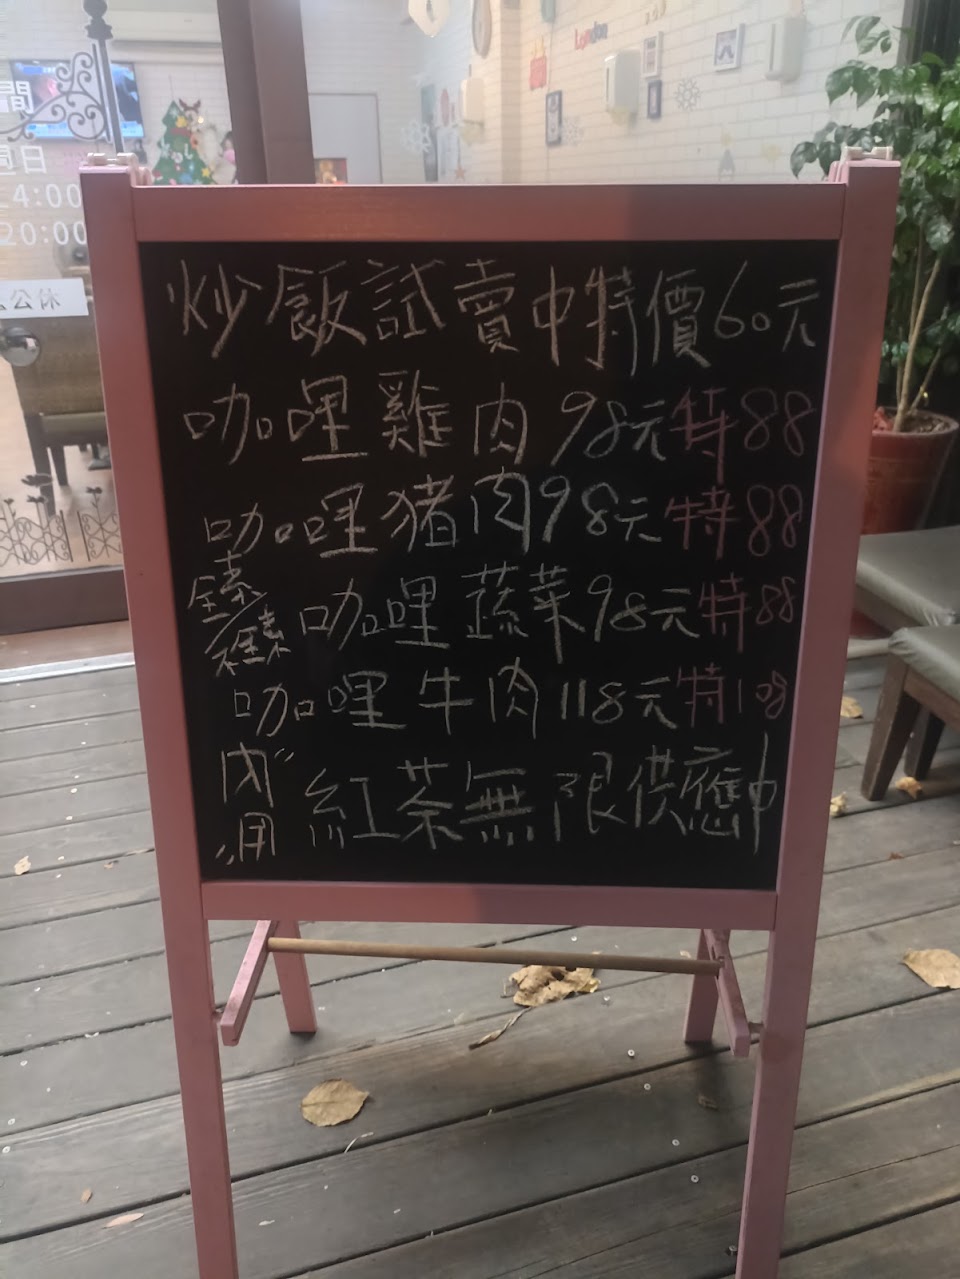 間
週日
14:00
20:00
公休
London
炒飯試賣中特價60元
咖哩雞肉98元特88
咖哩豬肉98元特88
臻臻咖哩蔬菜98元特88
咖哩牛肉118元特108
內用 紅茶無限供應中